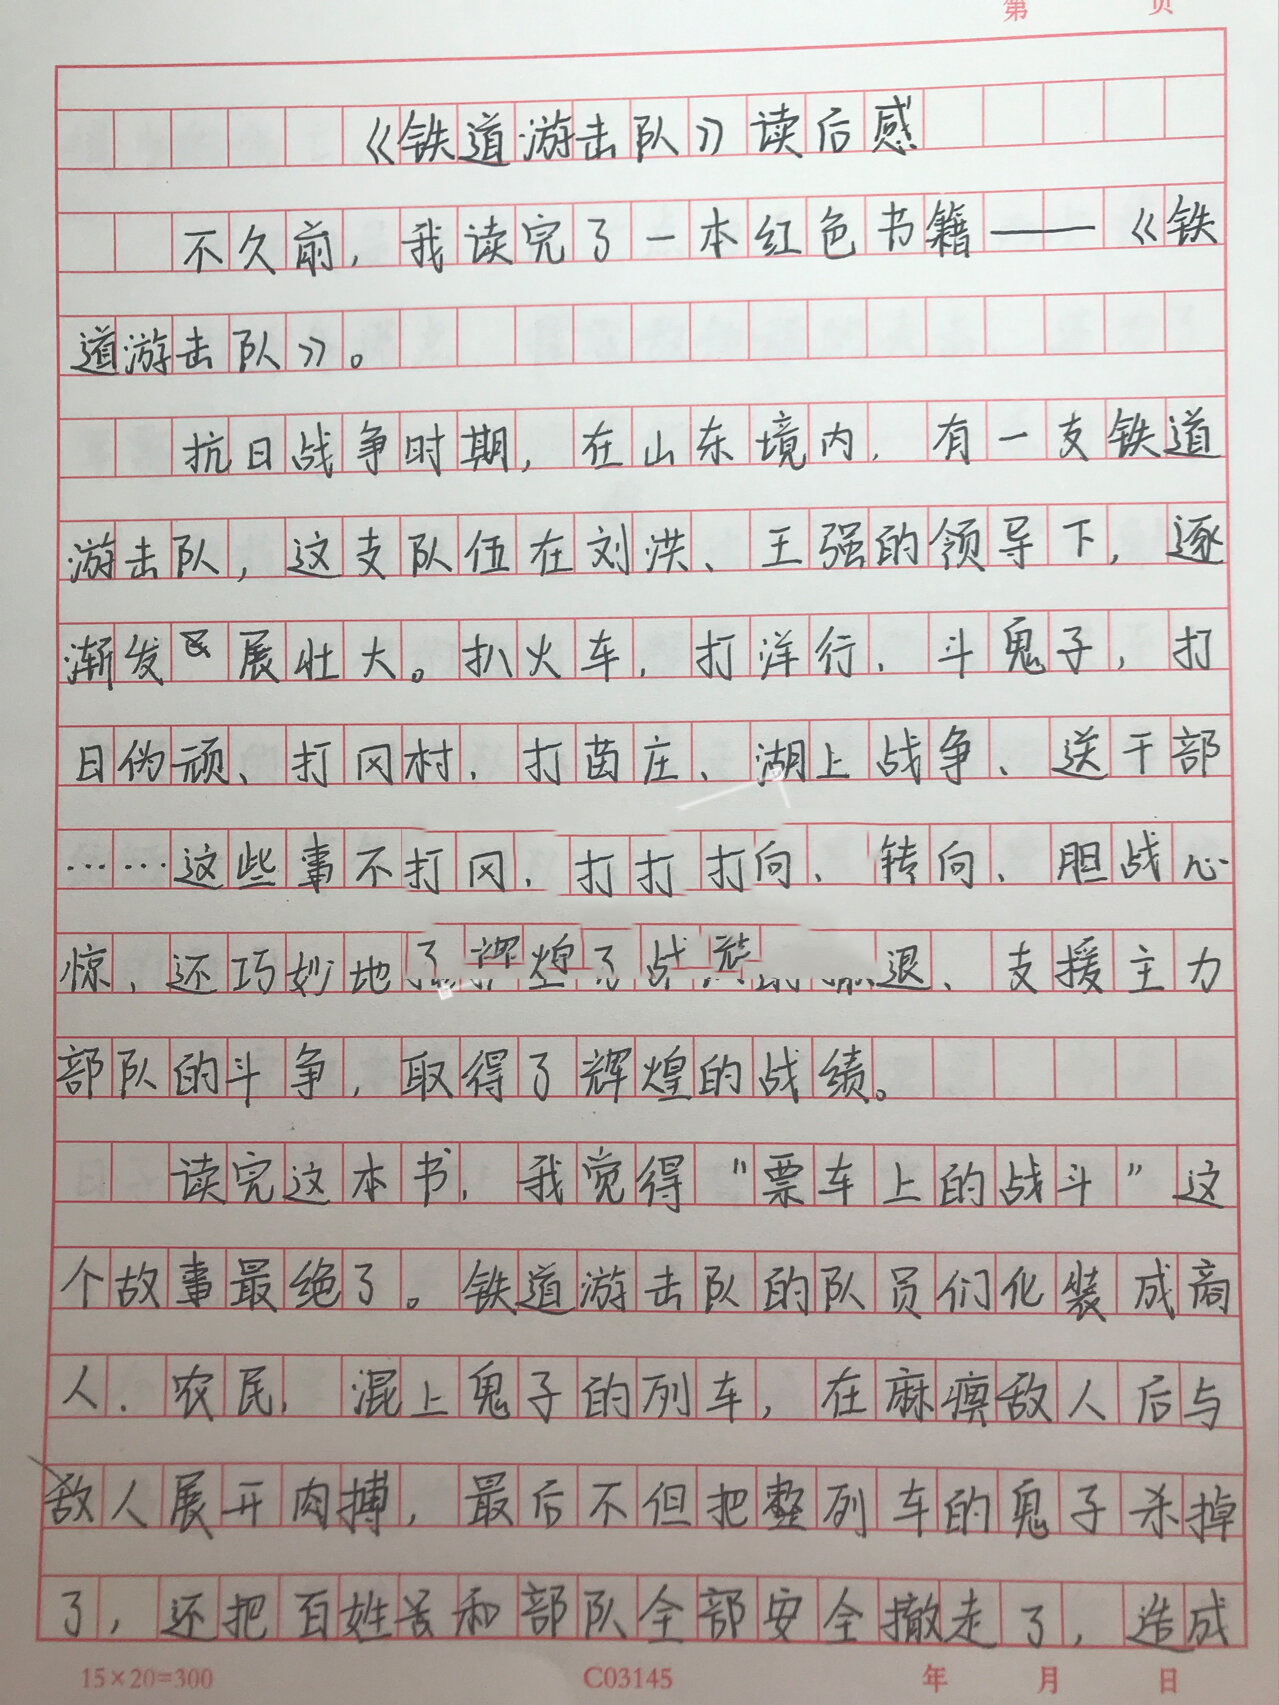 第 页
《铁道游击队》读后感
不久前,我读完了一本红色书籍——《铁
道游击队》。
抗日战争时期,在山东境内,有一支铁道
游击队,这支队伍在刘洪、王强的领导下,逐
渐发展壮大。扒火车,打洋行,斗鬼子,打
日伪顽、打冈村,打苗庄、湖上战争、送干部
……这些事不打冈,打打打向、转向、胆战心
惊,还巧妙地了辉煌了战退、支援主力
部队的斗争,取得了辉煌的战绩。
读完这本书,我觉得“票车上的战斗”这
个故事最绝了。铁道游击队的队员们化装成商
人、农民,混上鬼子的列车,在麻痹敌人后与
敌人展开肉搏,最后不但把整列车的鬼子杀掉
了,还把百姓和部队全部安全撤走了,造成
15×20=300 C03145 年 月 日